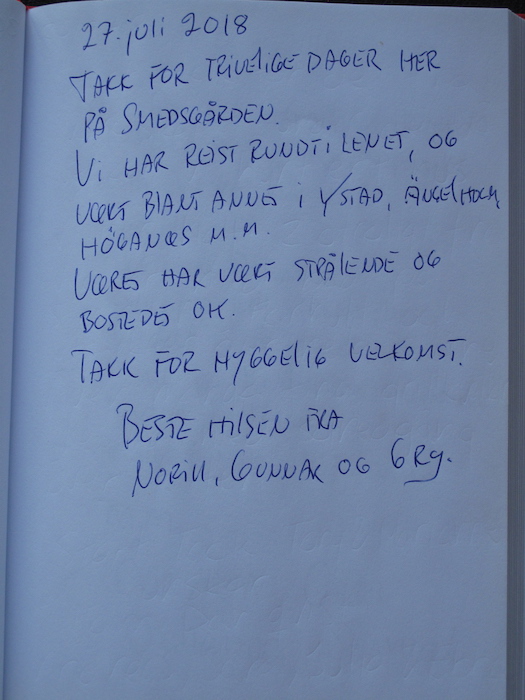 27. juli 2018
TAKK FOR TRIVELIGE DAGER HER
PÅ SMEDSGÅRDEN.
Vi HAR REIST RUNDT i LENET, OG
VÆRT BLANT ANNET i YSTAD, ÄNGELHOLM
HÖGANÆS M.M.
VÆRET HAR VÆRT STRÅLENDE OG
BOSTEDET OK.
TAKK FOR HYGGELIG VELKOMST.
BESTE HILSEN FRA
GUNNAR OG GRY.